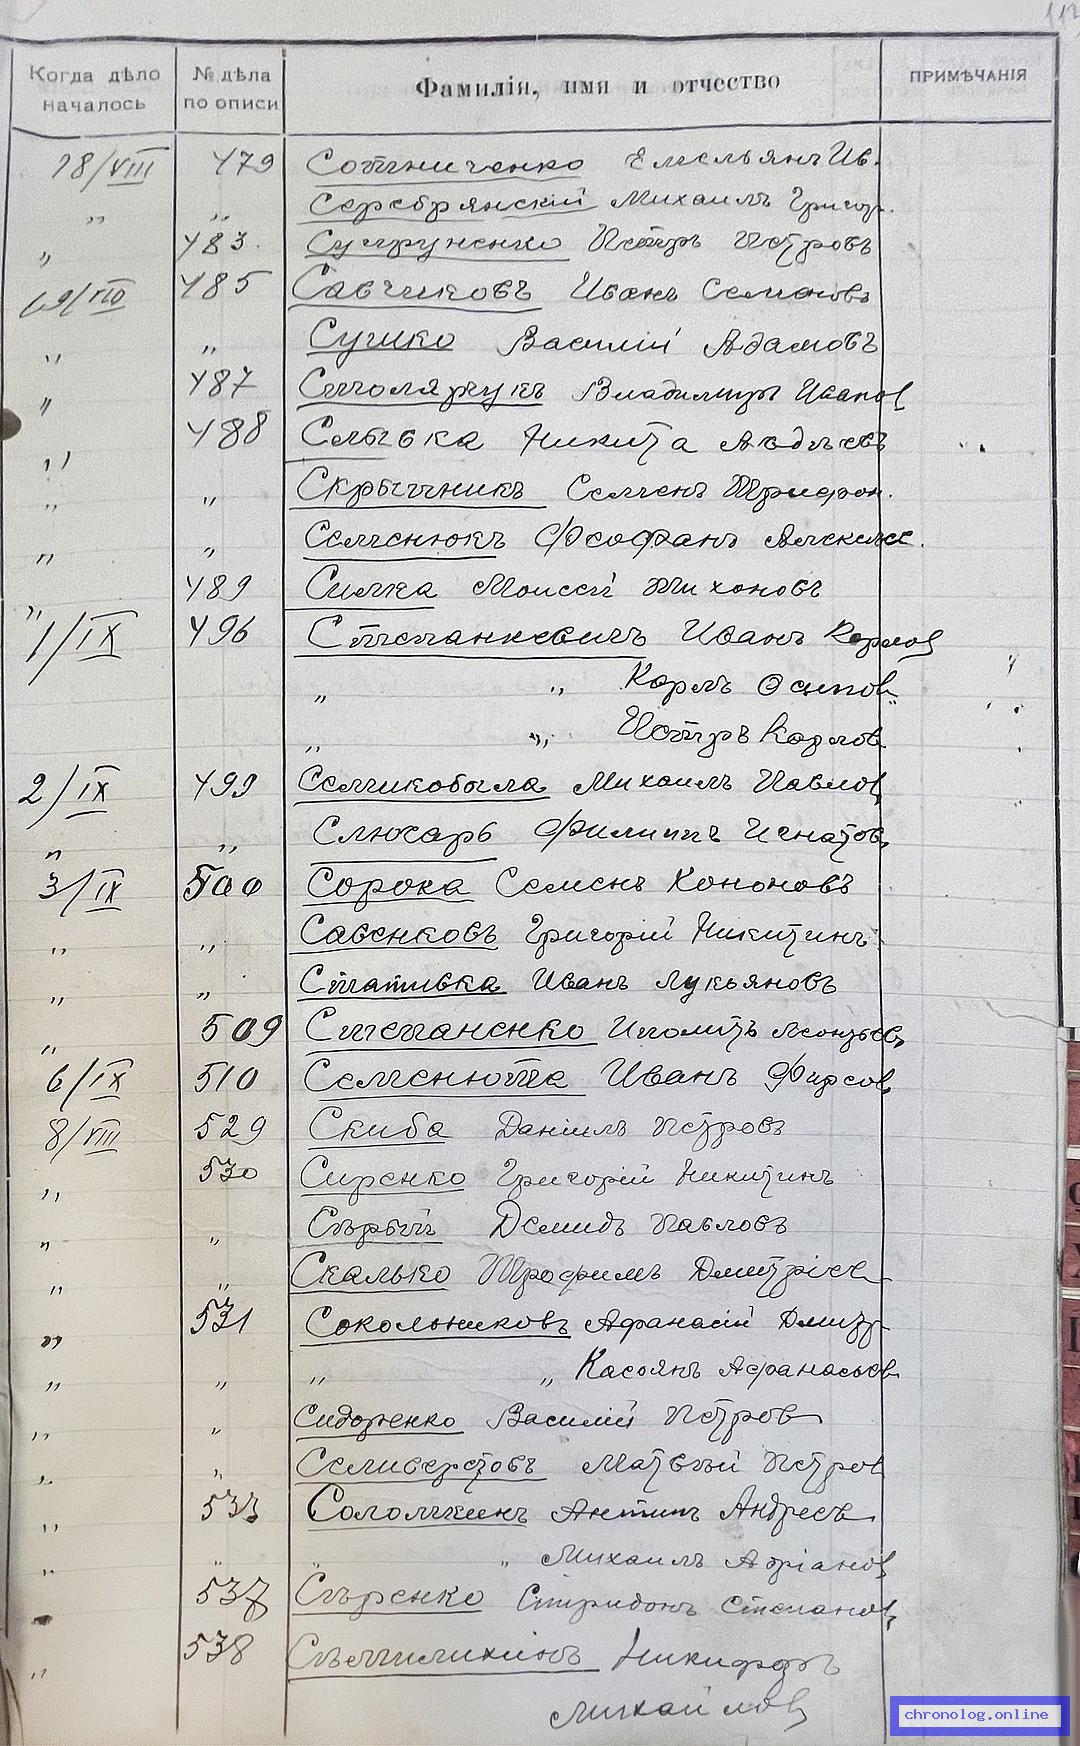 Когда дѣло началось № дѣла по описи Фамилія, имя и отчество ПРИМѢЧАНІЯ
18/VIII 479 Сотниченко Емельянъ Ив.
" " Серебрянскій Михаилъ Григор.
" 483. Супруненко Петръ Петровъ
19/VIII 485 Савчиковъ Иванъ Семеновъ
" " Сушко Василій Адамовъ
" 487 Столярчукъ Владимиръ Иванов
" 488 Слывка Никита Авдѣевъ
" " Скрыпникъ Семенъ Трифон.
" " Семенюкъ Феофанъ Алексѣев.
" 489 Симка Моисей Тихоновъ
1/IX 496 Степанкевичъ Иванъ Карлов
" " Карлъ Осипов
" " Петръ Карлов
2/IX 499 Семикобыла Михаилъ Павлов
" " Слюсарь Филиппъ Игнатов
3/IX 500 Сорока Семенъ Кононовъ
" " Савенковъ Григорій Никитинъ
" " Стативка Иванъ Лукьяновъ
" 509 Степаненко Иполитъ Леонтьев
6/IX 510 Семенюта Иванъ Фирсов
8/VIII 529 Скиба Даніилъ Петровъ
" 530 Сиренко Григорій Никитинъ
" " Сѣрый Демидъ Павловъ
" " Скалько Трофимъ Дмитріев
" 531 Сокольниковъ Афанасій Дмитр
" " " " Касьянъ Афанасьев
" " Сидоренко Василій Петров
" " Селиверстовъ Матвѣй Петров
" 533 Соломкинъ Антипъ Андреев
" " " " Михаилъ Адріанов
" 537 Сѣренко Спиридонъ Степанов
" 538 Никифоръ
Михайлов
chronolog.online